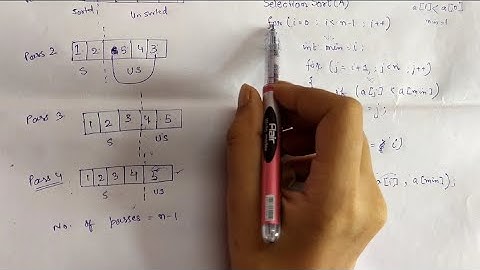 Sorted Unsorted
Pass 2 1 2 5 4 3
S US
Pass 3 1 2 3 4 5
S US
Pass 4 1 2 3 4 5
S US
No. of passes = n-1
Selection Sort (A)
for (i=0 ; i<n-1 ; i++)
int min = i;
for (j = i+1 ; j<n ; j++)
{
if (a[j] < a[min])
= j;
i)
a[i] , a[min]);
a[1] < a[0]
min=1
Flair